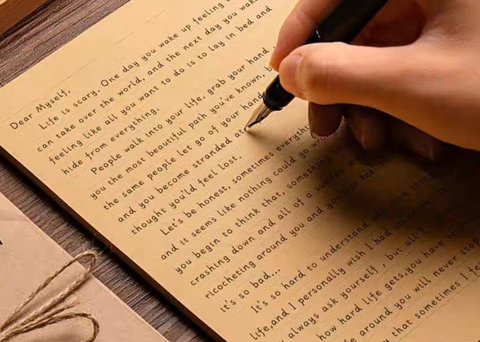 Dear Myself,
Life is scary. One day you wake up feeling
can take over the world, and the next day you wake
feeling like all you want to do is to lay in bed and
hide from everything.
People walk into your life, grab your hand,
you the most beautiful path you've known,
the same people let go of your hand
and you become stranded
thought you'd feel lost.
Let's be honest, sometimes everything
and it seems like nothing could go
you begin to think that
crashing down and all of a
ricocheting around you and
it's so bad...
It's so hard to understand
life, and I personally wish I had
always ask yourself, but all
how hard life gets, you have
life around you will never stop
that sometimes I